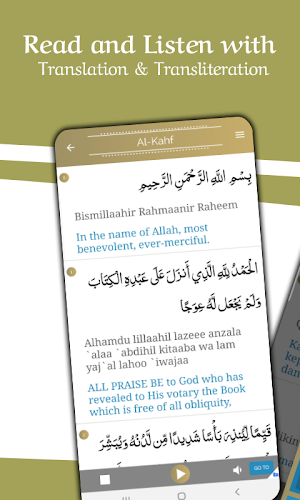 Read and Listen with
Translation & Transliteration
Al-Kahf
بِسْمِ اللَّهِ الرَّحْمَنِ الرَّحِيمِ
Bismillaahir Rahmaanir Raheem
In the name of Allah, most
benevolent, ever-merciful.
1
الْحَمْدُ لِلَّهِ الَّذِي أَنزَلَ عَلَى عَبْدِهِ الْكِتَابَ
وَلَمْ يَجْعَل لَّهُ عِوَجًا
Alhamdu lillaahil lazeee anzala
`alaa `abdihil kitaaba wa lam
yaj`al lahoo `iwajaa
ALL PRAISE BE to God who has
revealed to His votary the Book
which is free of all obliquity,
قَيِّمًا لِّيُنذِرَ بَأْسًا شَدِيدًا مِّن لَّدُنْهُ وَيُبَشِّرَ
GO TO